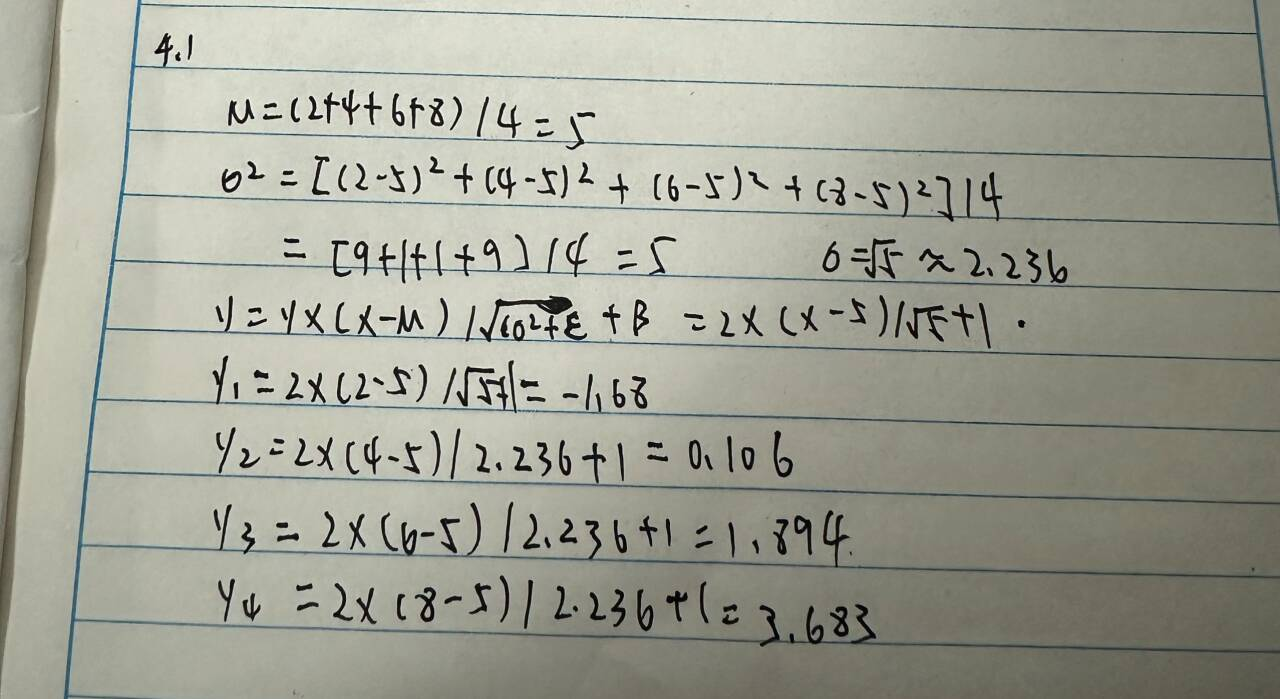 4.1
μ=(2+4+6+8)/4=5
σ²=[(2-5)²+(4-5)²+(6-5)²+(8-5)²]/4
=[9+1+1+9]/4=5 σ=√5≈2.236
y=γ×(x-μ)/√(σ²+ε+β =2×(x-5)/√5+1.
y₁=2×(2-5)/√5+1=-1.68
y₂=2×(4-5)/2.236+1=0.106
y₃=2×(6-5)/2.236+1=1.894.
y₄=2×(8-5)/2.236+1=3.683